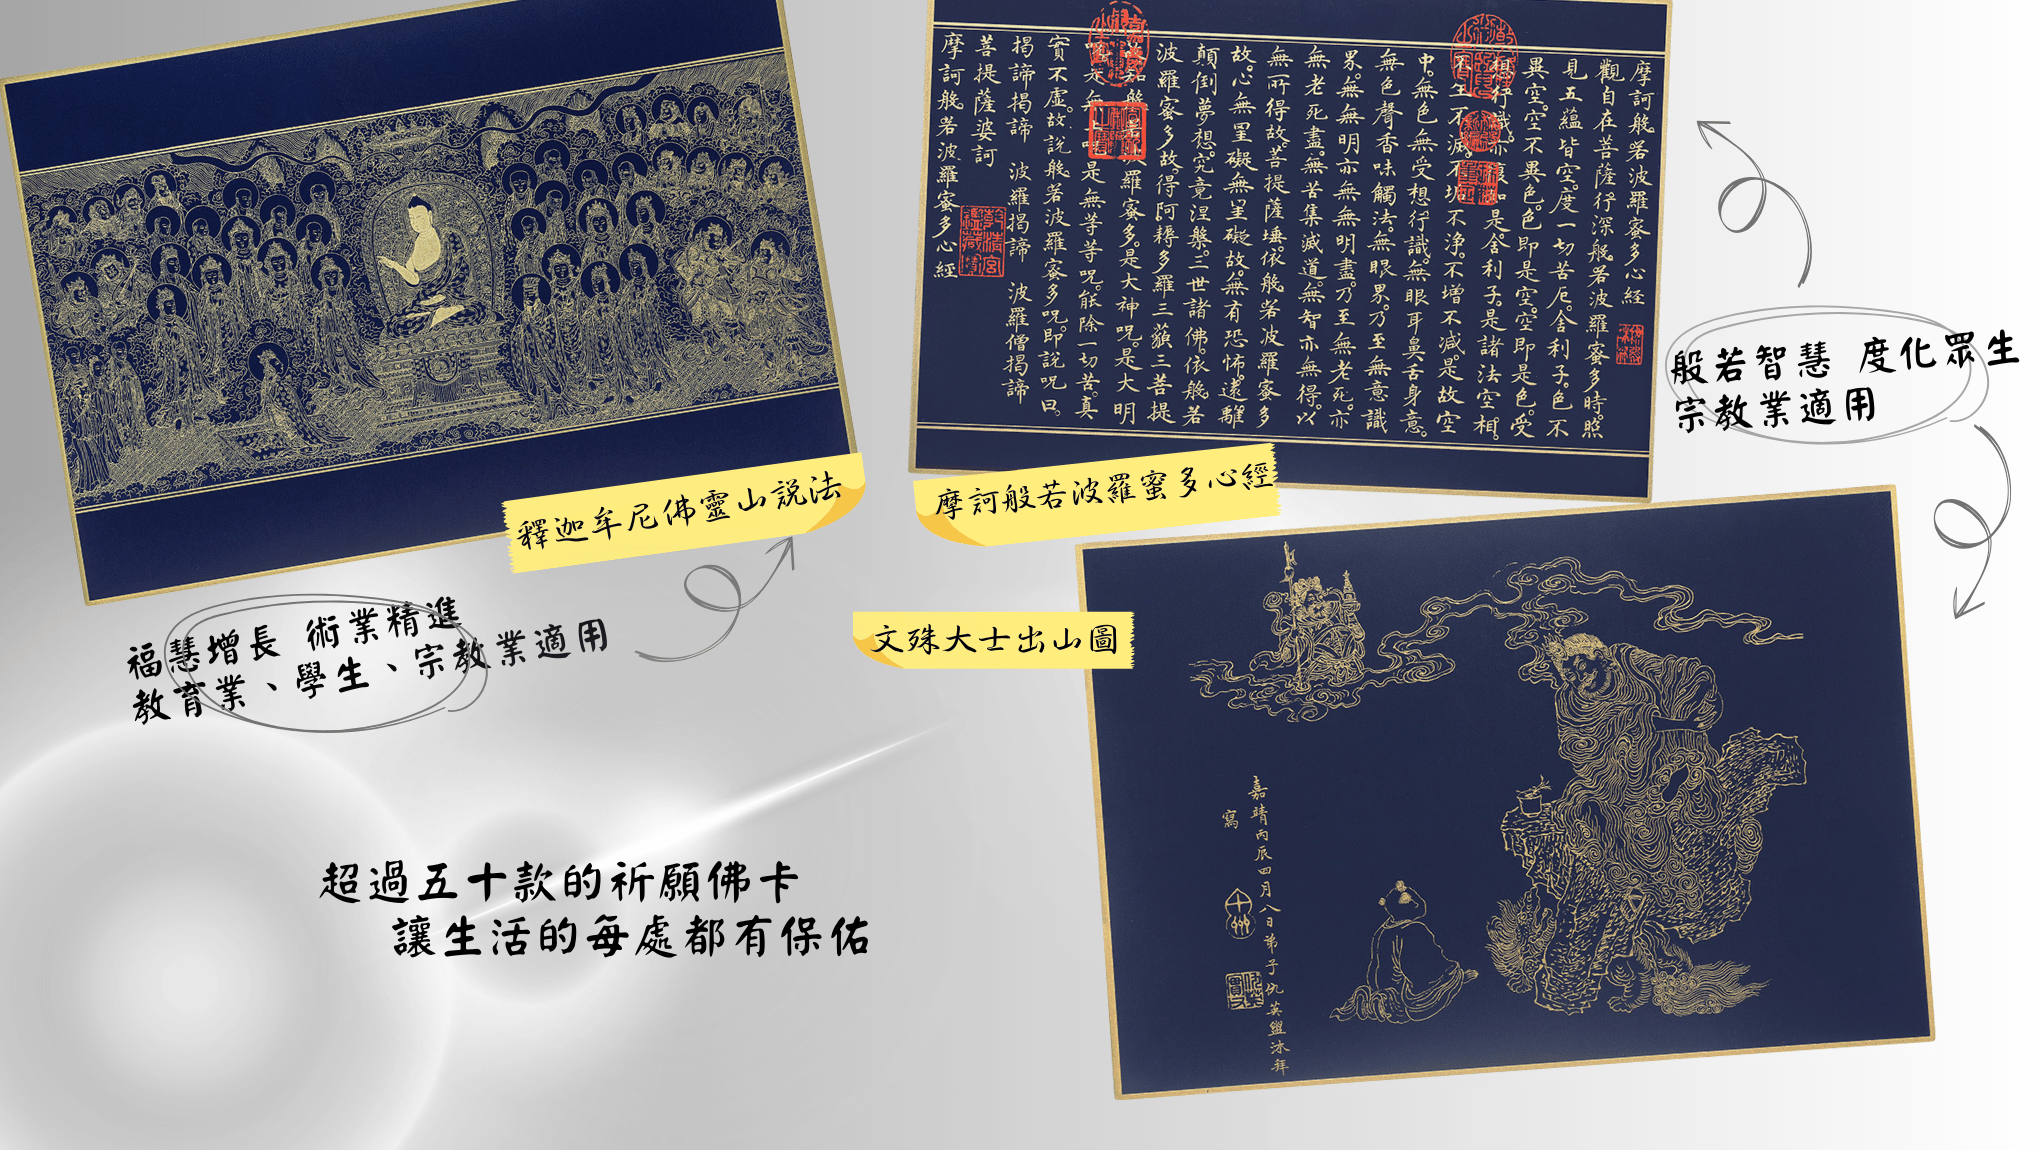 摩訶般若波羅蜜多心經
觀自在菩薩行深般若波羅蜜多時。照
見五蘊皆空。度一切苦厄。舍利子。色不
異空。空不異色。色即是空。空即是色。受
想行識。亦復如是。舍利子。是諸法空相。
不生不滅。不垢不淨。不增不減。是故空
中。無色無受想行識。無眼耳鼻舌身意。
無色聲香味觸法。無眼界。乃至無意識
界。無無明亦無無明盡。乃至無老死。亦
無老死盡。無苦集滅道。無智亦無得。以
無所得故。菩提薩埵。依般若波羅蜜多
故。心無罣礙無罣礙故。無有恐怖。遠離
顛倒夢想。究竟涅槃。三世諸佛。依般若
波羅蜜多故。得阿耨多羅三藐三菩提
故知般若波羅蜜多。是大神呪。是大明
呪。是無上呪。是無等等呪。能除一切苦。真
實不虛。故說般若波羅蜜多呪。即說呪曰。
揭諦揭諦 波羅揭諦 波羅僧揭諦
菩提薩婆訶
摩訶般若波羅蜜多心經
乾清宮鑑藏寶
般若智慧 度化眾生
宗教業適用
釋迦牟尼佛靈山説法
摩訶般若波羅蜜多心經
福慧增長 術業精進
教育業、學生、宗教業適用
文殊大士出山圖
嘉靖丙辰四月八日弟子仇英盥沐拜
寫
十洲
超過五十款的祈願佛卡
讓生活的每處都有保佑